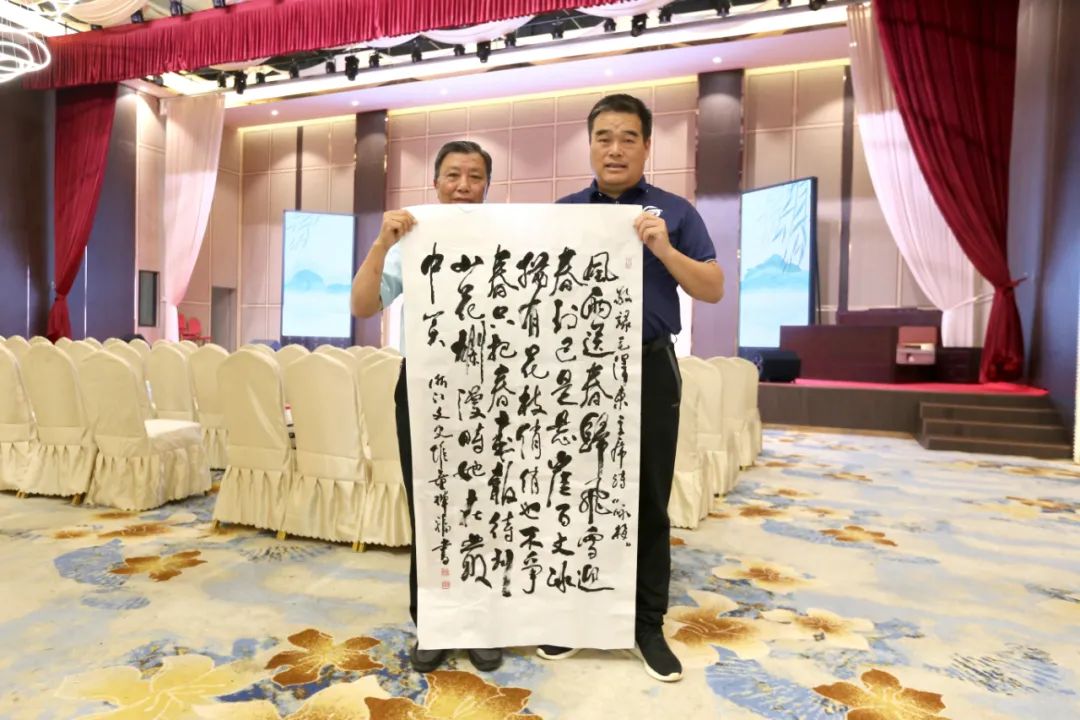 敬録毛澤東主席詩“咏梅”
風雨送春歸飛雪迎
春到已是悬崖百丈冰
猶有花枝俏俏也不爭
春只把春來報待到
山花爛漫時她在叢
中笑
浙江文史童禅福書